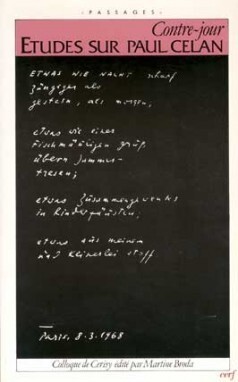 · PASSAGES ·
Contre-jour
ETUDES SUR PAUL CELAN
ETWAS WIE NACHT scharf
züngiger als
gestern, als morgen;
etwas wie einer
Fischmäuligen Gruß
übern Jammer-
tresen;
etwas Zusammengewehtes
in Kinderfäusten;
etwas aus meinem
und keinerlei Stoff
Paris, 8.3.1968
Colloque de Cerisy édité par Martine Broda
cerf